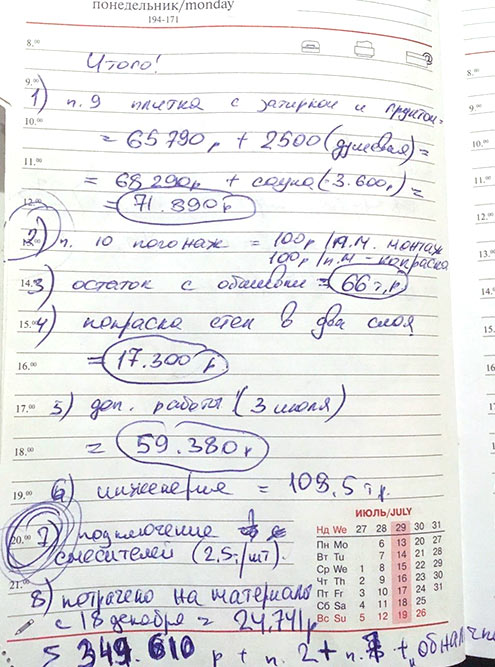 понедельник/monday
194-171
8.00
Итого!
9.00
1) п. 9 плитка с затиркой и грунтом=
10.00
= 65790 р + 2500 (душевая) =
11.00
= 68290р + сауна (-3.600р) =
12.00
= 71.890 р
2) п. 10 погонаж = 100р/п.м. монтаж
13.00
100р/п.м - покраска
14.00
3) остаток с обшивки = 66 т.р
15.00
4) покраска стен в два слоя
16.00
= 17.300 р
17.00
5) доп. работы (3 июля)
18.00
= 59.380 р
19.00
6) инженерия = 109,5 т.р.
20.00
7) подключение
смесителей (2,5т/шт).
21.00
8) потрачено на материалы
с 18 декабря = 24.741 р
349.610 р + п. 2 + п. 7 +
ИЮЛЬ/JULY
Нд We 27 28 29 30 31
Пн Mo 6 13 20 27
Вт Tu 7 14 21 28
Ср We 1 8 15 22 29
Чт Th 2 9 16 23 30
Пт Fr 3 10 17 24 31
Сб Sa 4 11 18 25
Вс Su 5 12 19 26
8.00
9.00
10.00
11.00
12.00
13.00
14.00
15.00